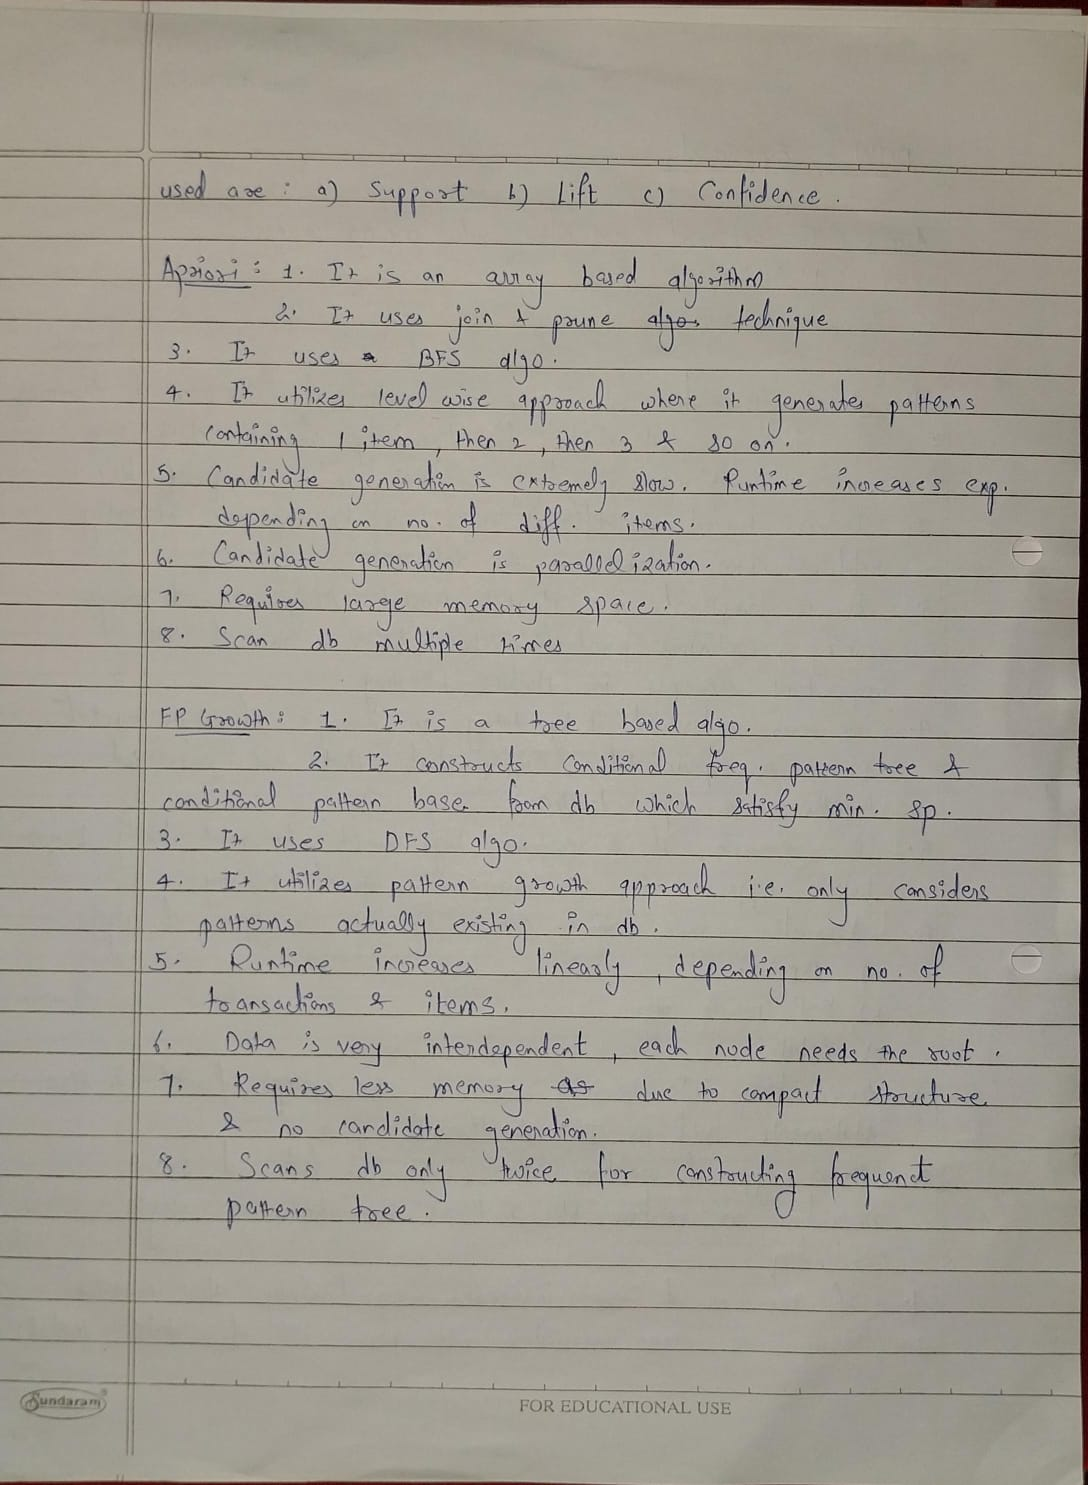 used are : a) Support b) Lift c) Confidence .
Apriori : 1. It is an array based algorithm
2. It uses join & prune algo technique
3. It uses BFS algo.
4. It utilizes level wise approach where it generates patterns
containing 1 item, then 2, then 3 & so on.
5. Candidate generation is extremely slow. Runtime increases exp.
depending on no. of diff. items.
6. Candidate generation is parallelization.
7. Requires large memory space.
8. Scan db multiple times
FP Growth : 1. It is a tree based algo.
2. It constructs conditional freq. pattern tree &
conditional pattern base from db which satisfy min. sp.
3. It uses DFS algo.
4. It utilizes pattern growth approach i.e. only considers
patterns actually existing in db.
5. Runtime increases linearly, depending on no. of
transactions & items.
6. Data is very interdependent, each node needs the root.
7. Requires less memory due to compact structure
& no candidate generation.
8. Scans db only twice for constructing frequenct
pattern tree.
Sundaram
FOR EDUCATIONAL USE